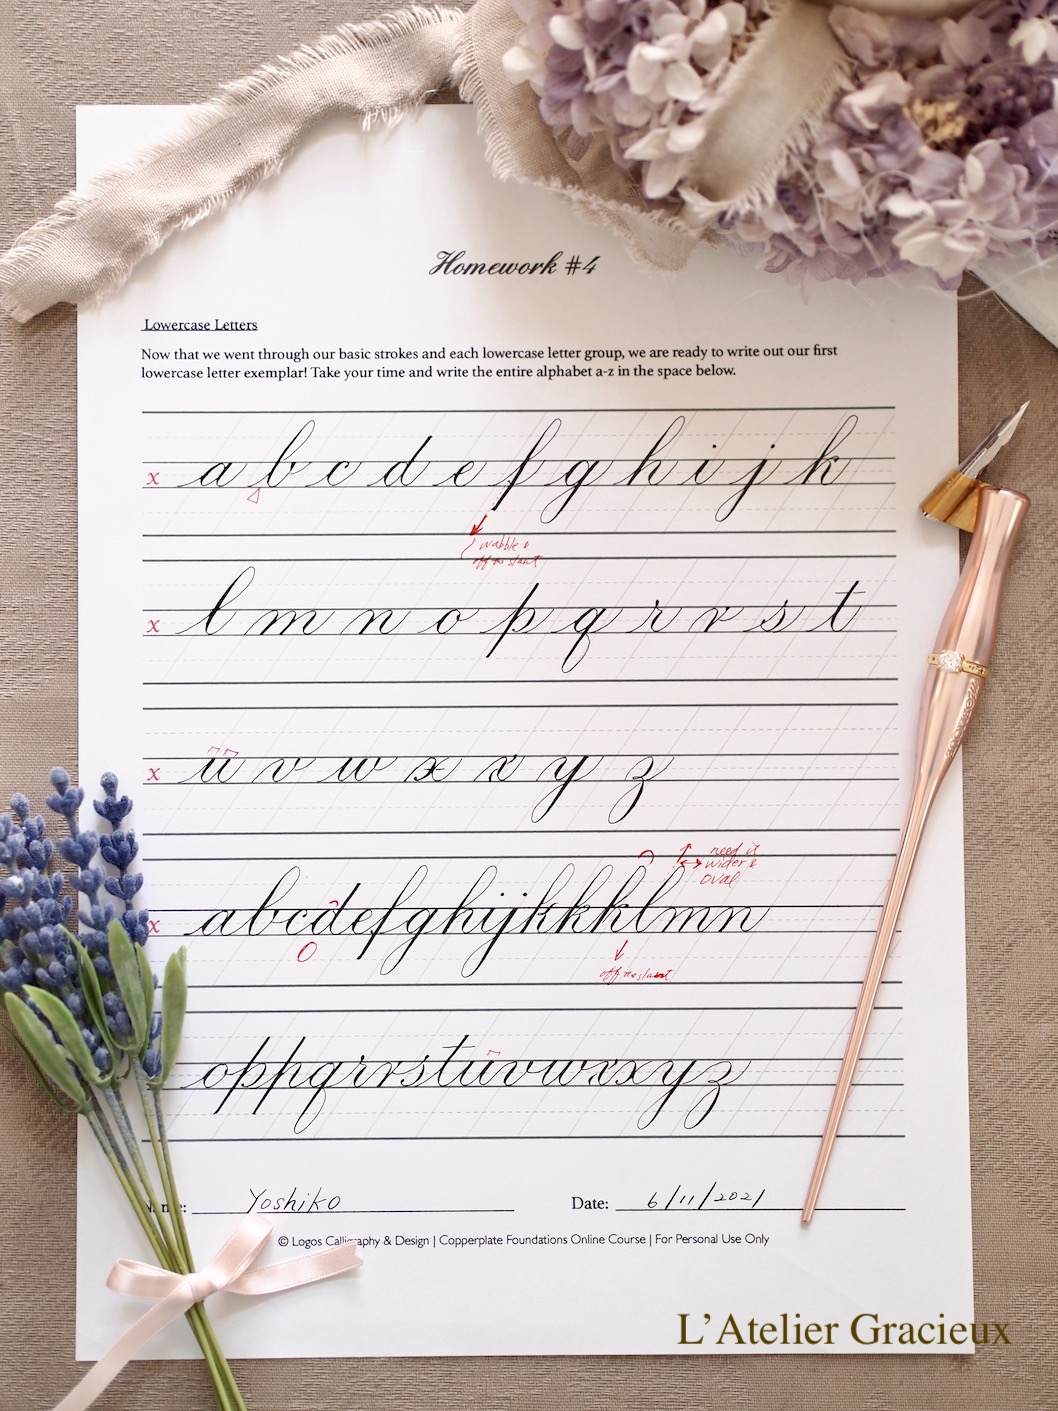 Homework #4
Lowercase Letters
Now that we went through our basic strokes and each lowercase letter group, we are ready to write out our first
lowercase letter exemplar! Take your time and write the entire alphabet a-z in the space below.
x a b c d e f g h i j k
wabble &
off the slant
x l m n o p q r r s t
x u v w x x y z
need it
wider &
oval
x abcdefghijkkklmn
off the slant
oppqrrstuvwxxyz
Name: Yoshiko Date: 6/11/2021
© Logos Calligraphy & Design | Copperplate Foundations Online Course | For Personal Use Only
L'Atelier Gracieux